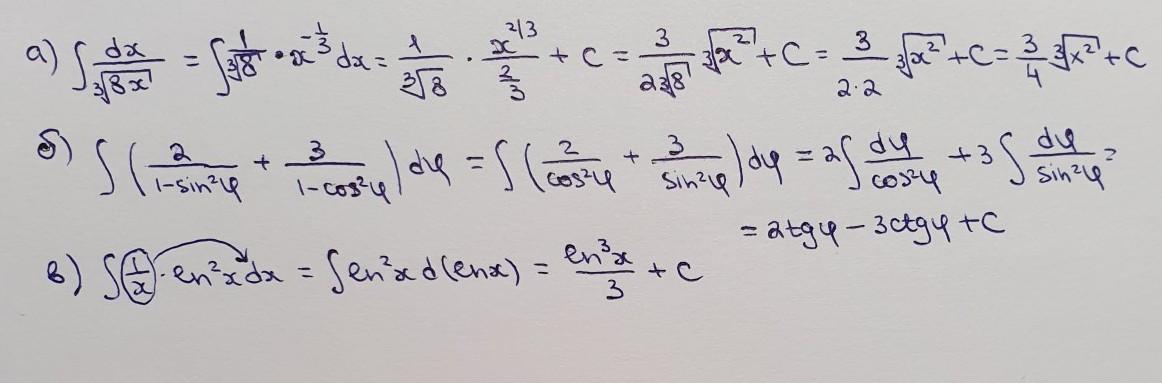 а) ∫ dx/∛(8x) = ∫ 1/∛8 · x^(-1/3) dx = 1/∛8 · x^(2/3)/(2/3) + C = 3/(2∛8) ∛(x²) + C = 3/(2·2) ∛(x²) + C = 3/4 ∛(x²) + C
б) ∫ (2/(1-sin²φ) + 3/(1-cos²φ)) dφ = ∫ (2/cos²φ + 3/sin²φ) dφ = 2∫ dφ/cos²φ + 3∫ dφ/sin²φ =
= 2tgφ - 3ctgφ + C
в) ∫ (1/x) · ln²x dx = ∫ ln²x d(lnx) = ln³x/3 + C